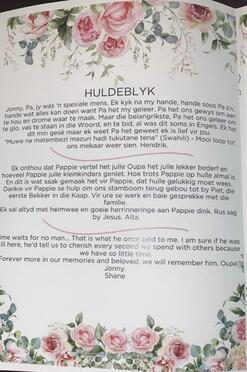 HULDEBLYK
Jonny, Pa, jy was 'n spesiale mens. Ek kyk na my hande, hande soos Pa s'n,
hande wat alles kan doen want Pa het my geleer. Pa het ons gewys om aan
te hou en drome waar te maak. Maar die belangrikste, Pa het ons geleer om
te glo, vas te staan in die Woord, en te bid, al was dit soms in Engels. Ek het
dit min gesê maar ek weet Pa het geweet ek is lief vir jou.
"Muwe na matembezi mazuri hadi tukutane tena" (Swahili) - Mooi loop tot
ons mekaar weer sien. Hendrik.
Ek onthou dat Pappie vertel het julle Oupa het julle lekker bederf en
hoeveel Pappie julle kleinkinders geniet. Hoe trots Pappie op hulle almal is.
En dit is wat saak gemaak het vir Pappie, dat hulle gelukkig moet wees.
Dankie vir Pappie se hulp om ons stamboom terug gebou tot by Piet, die
eerste Bekker in die Kaap. Vir ure se werk en baie gesprekke met die
familie.
Ek sal altyd met heimwee en goeie herrinneringe aan Pappie dink. Rus sag
by Jesus. Alta.
ime waits for no man... That is what he once said to me. I am sure if he was
ill here, he'd tell us to cherish every second we spend with others because
we have so little time.
Forever more in our memories and beloved, we will remember him. Oupa
Jonny.
Shane